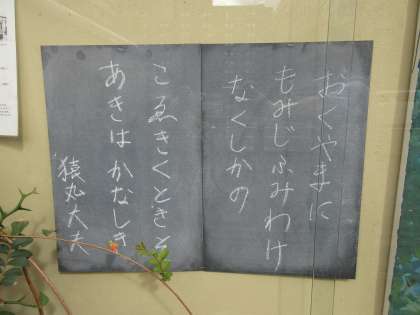 おくやまに
もみじふみわけ
なくしかの
こゑきくときそ
あきはかなしき
猿丸大夫